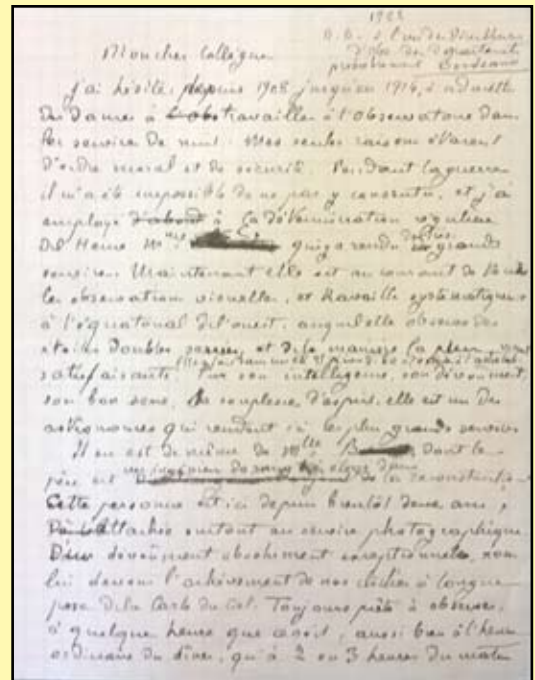 1922
à l'un des Directeurs
d'Obs. des Départements
Bordeaux
Mon cher Collègue
J'ai hésité, depuis 1908 jusqu'en 1914, à admettre
des Dames à travailler à l'Observatoire dans
les services de nuit. Mes seules raisons étaient
d'ordre moral et de sécurité. Pendant la guerre
il m'a été impossible de ne pas y consentir, et j'ai
employé d'abord à la détermination régulière
de l'Heure Mme qui a rendu de grands
services. Maintenant elle est au courant de toutes
les observations visuelles, et travaille systématiquement
à l'équatorial de l'ouest, auquel elle observe des
étoiles doubles serrées, et de la manière la plus
satisfaisante. Par son intelligence, son dévouement,
son bon sens, sa souplesse d'esprit, elle est un des
astronomes qui rendent ici les plus grands services
Il en est de même de Mlle B dont le
père est de la reconstruction
Cette personne est ici depuis bientôt deux ans,
attachée surtout au service photographique
D'un dévouement absolument exceptionnel, nous
lui devons l'achèvement de nos clichés à longue
pose de la Carte du Ciel. Toujours prête à observer,
à quelque heure que ce soit, aussi bien à l'heure
ordinaire du dîner, qu'à 2 ou 3 heures du matin